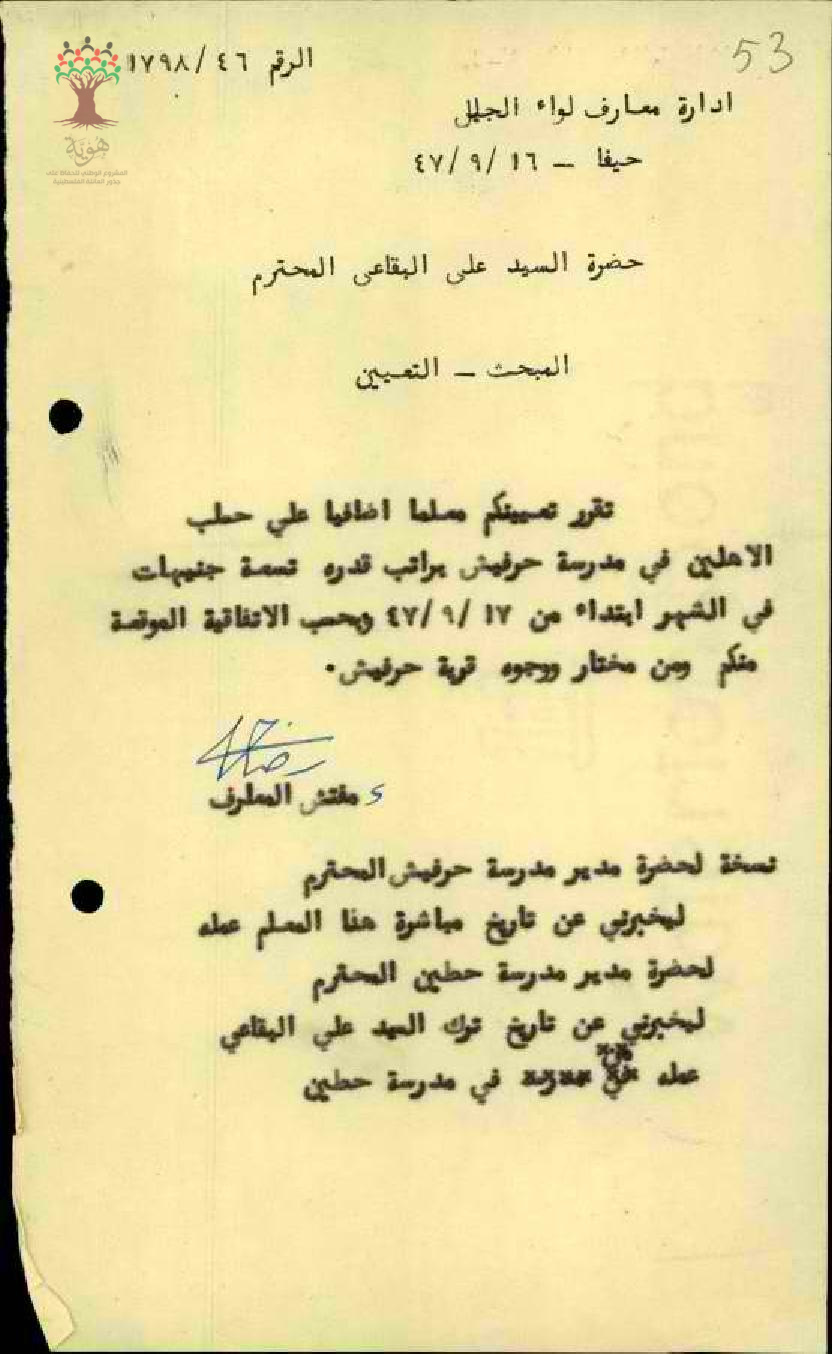 53
الرقم ١٧٩٨/٤٦
هوية
المشروع الوطني للحفاظ على
جذور العائلة الفلسطينية
ادارة معارف لواء الجليل
حيفا – ٤٧/٩/١٦
حضرة السيد علي البقاعي المحترم
المبحث – التعيين
تقرر تعيينكم معلما اضافيا علي حساب
الاهلين في مدرسة حرفيش براتب قدره تسعة جنيهات
في الشهر ابتداء من ٤٧/٩/١٧ وبحسب الاتفاقية الموقعة
منكم ومن مختار ووجوه قرية حرفيش.
مفتش المعارف
نسخة لحضرة مدير مدرسة حرفيش المحترم
ليخبرني عن تاريخ مباشرة هذا المعلم عمله
لحضرة مدير مدرسة حطين المحترم
ليخبرني عن تاريخ ترك السيد علي البقاعي
عمله في مدرسة حطين